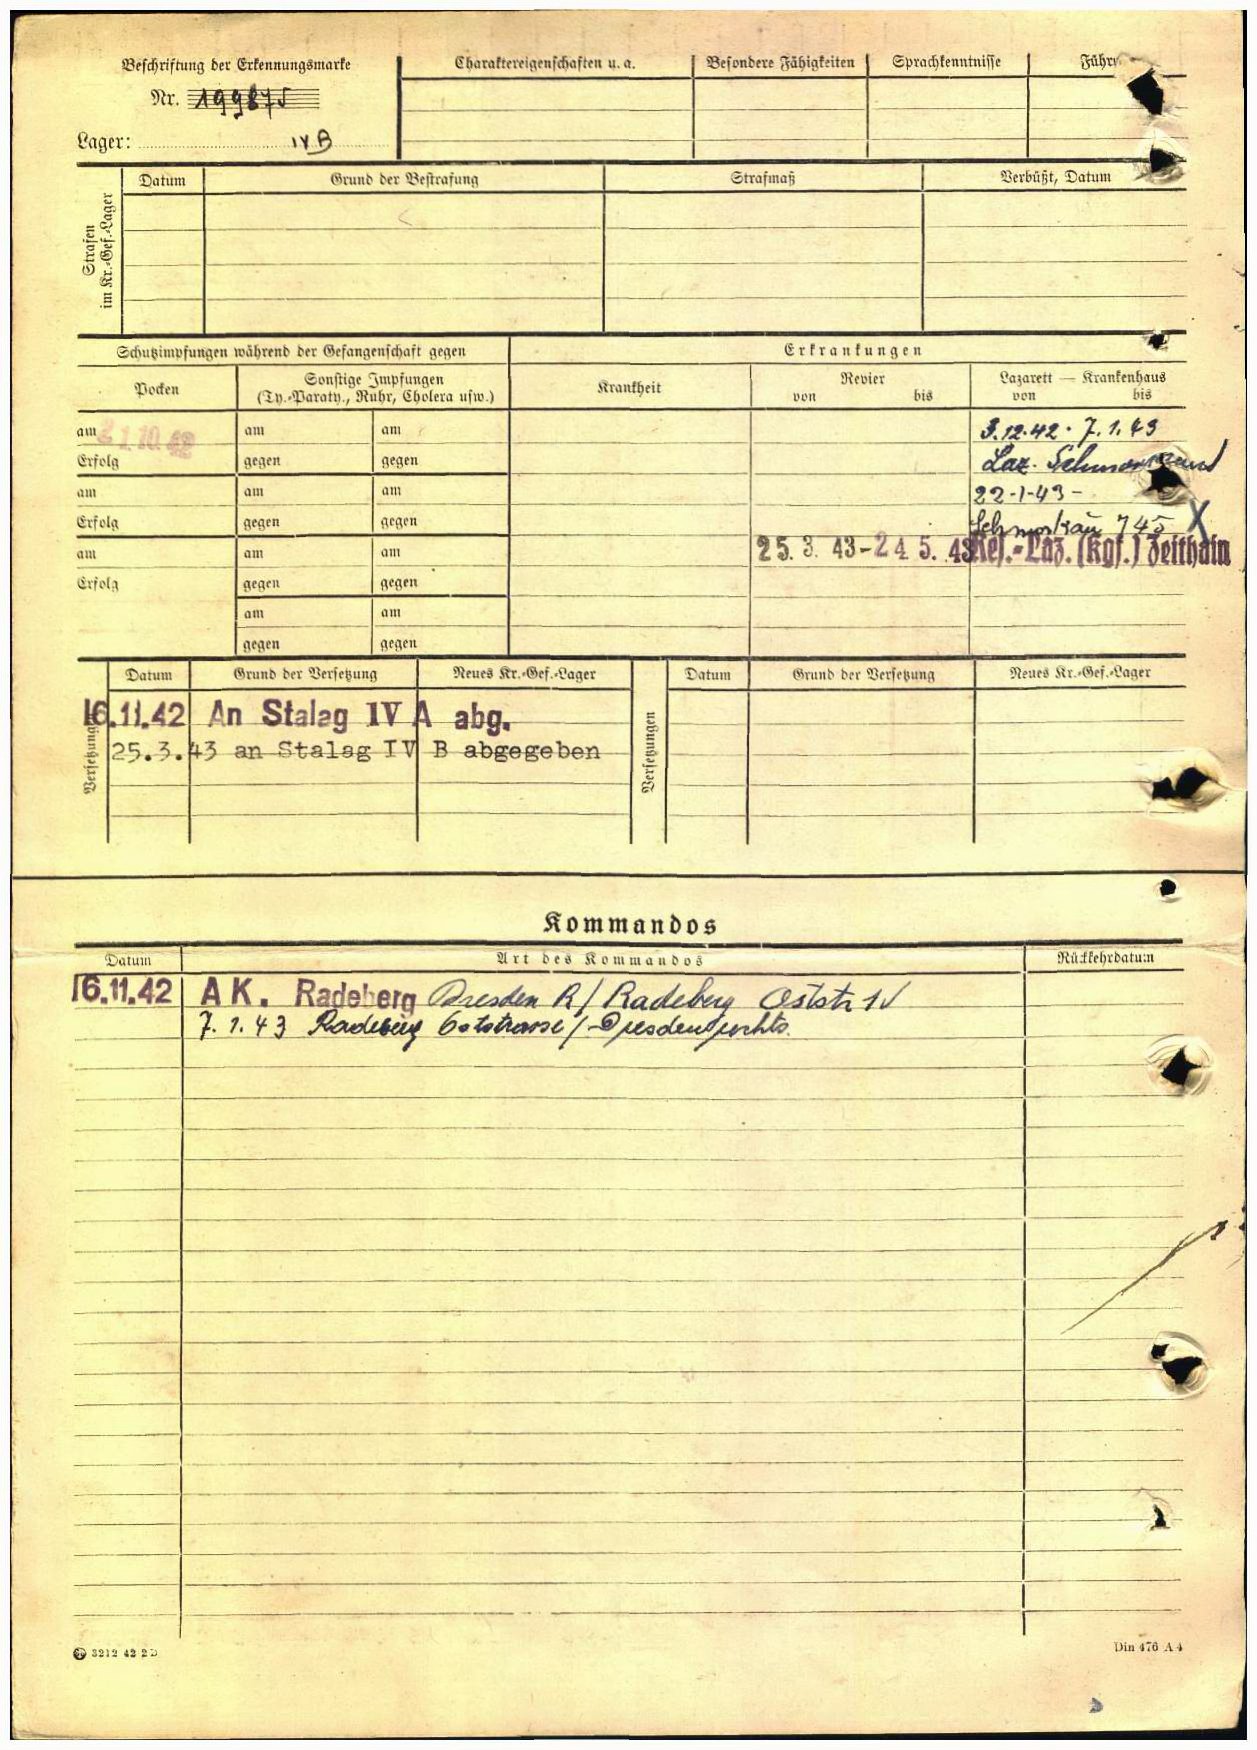 Beschriftung der Erkennungsmarke
Nr. 199875
Lager: IV B
Charaktereigenschaften u. a.
Besondere Fähigkeiten
Sprachkenntnisse
Strafen
im Kr.-Gef.-Lager
Datum
Grund der Bestrafung
Strafmaß
Verbüßt, Datum
Schutzimpfungen während der Gefangenschaft gegen
Erkrankungen
Pocken
Sonstige Impfungen
(Ty.-Paraty., Ruhr, Cholera usw.)
Krankheit
Revier
von bis
Lazarett — Krankenhaus
von bis
am 21.10.42 am am 3.12.42 - 7.1.43
Erfolg gegen gegen Laz.
am am am 22-1-43 -
Erfolg gegen gegen Schmorkau 745 X
am am am 25.3.43-24.5.43 Res.-Laz. (Kgf.) Zeithain
Erfolg gegen gegen
am am
gegen gegen
Versetzungen
Datum Grund der Versetzung Neues Kr.-Gef.-Lager
16.11.42 An Stalag IV A abg.
25.3.43 an Stalag IV B abgegeben
Versetzungen
Datum Grund der Versetzung Neues Kr.-Gef.-Lager
Kommandos
Datum Art des Kommandos Rückkehrdatum
16.11.42 AK. Radeberg Dresden R/ Radeberg Oststr
7.1.43 Radeberg Oststrasse/ Dresden rechts.
3212 42 2D
Din 476 A 4